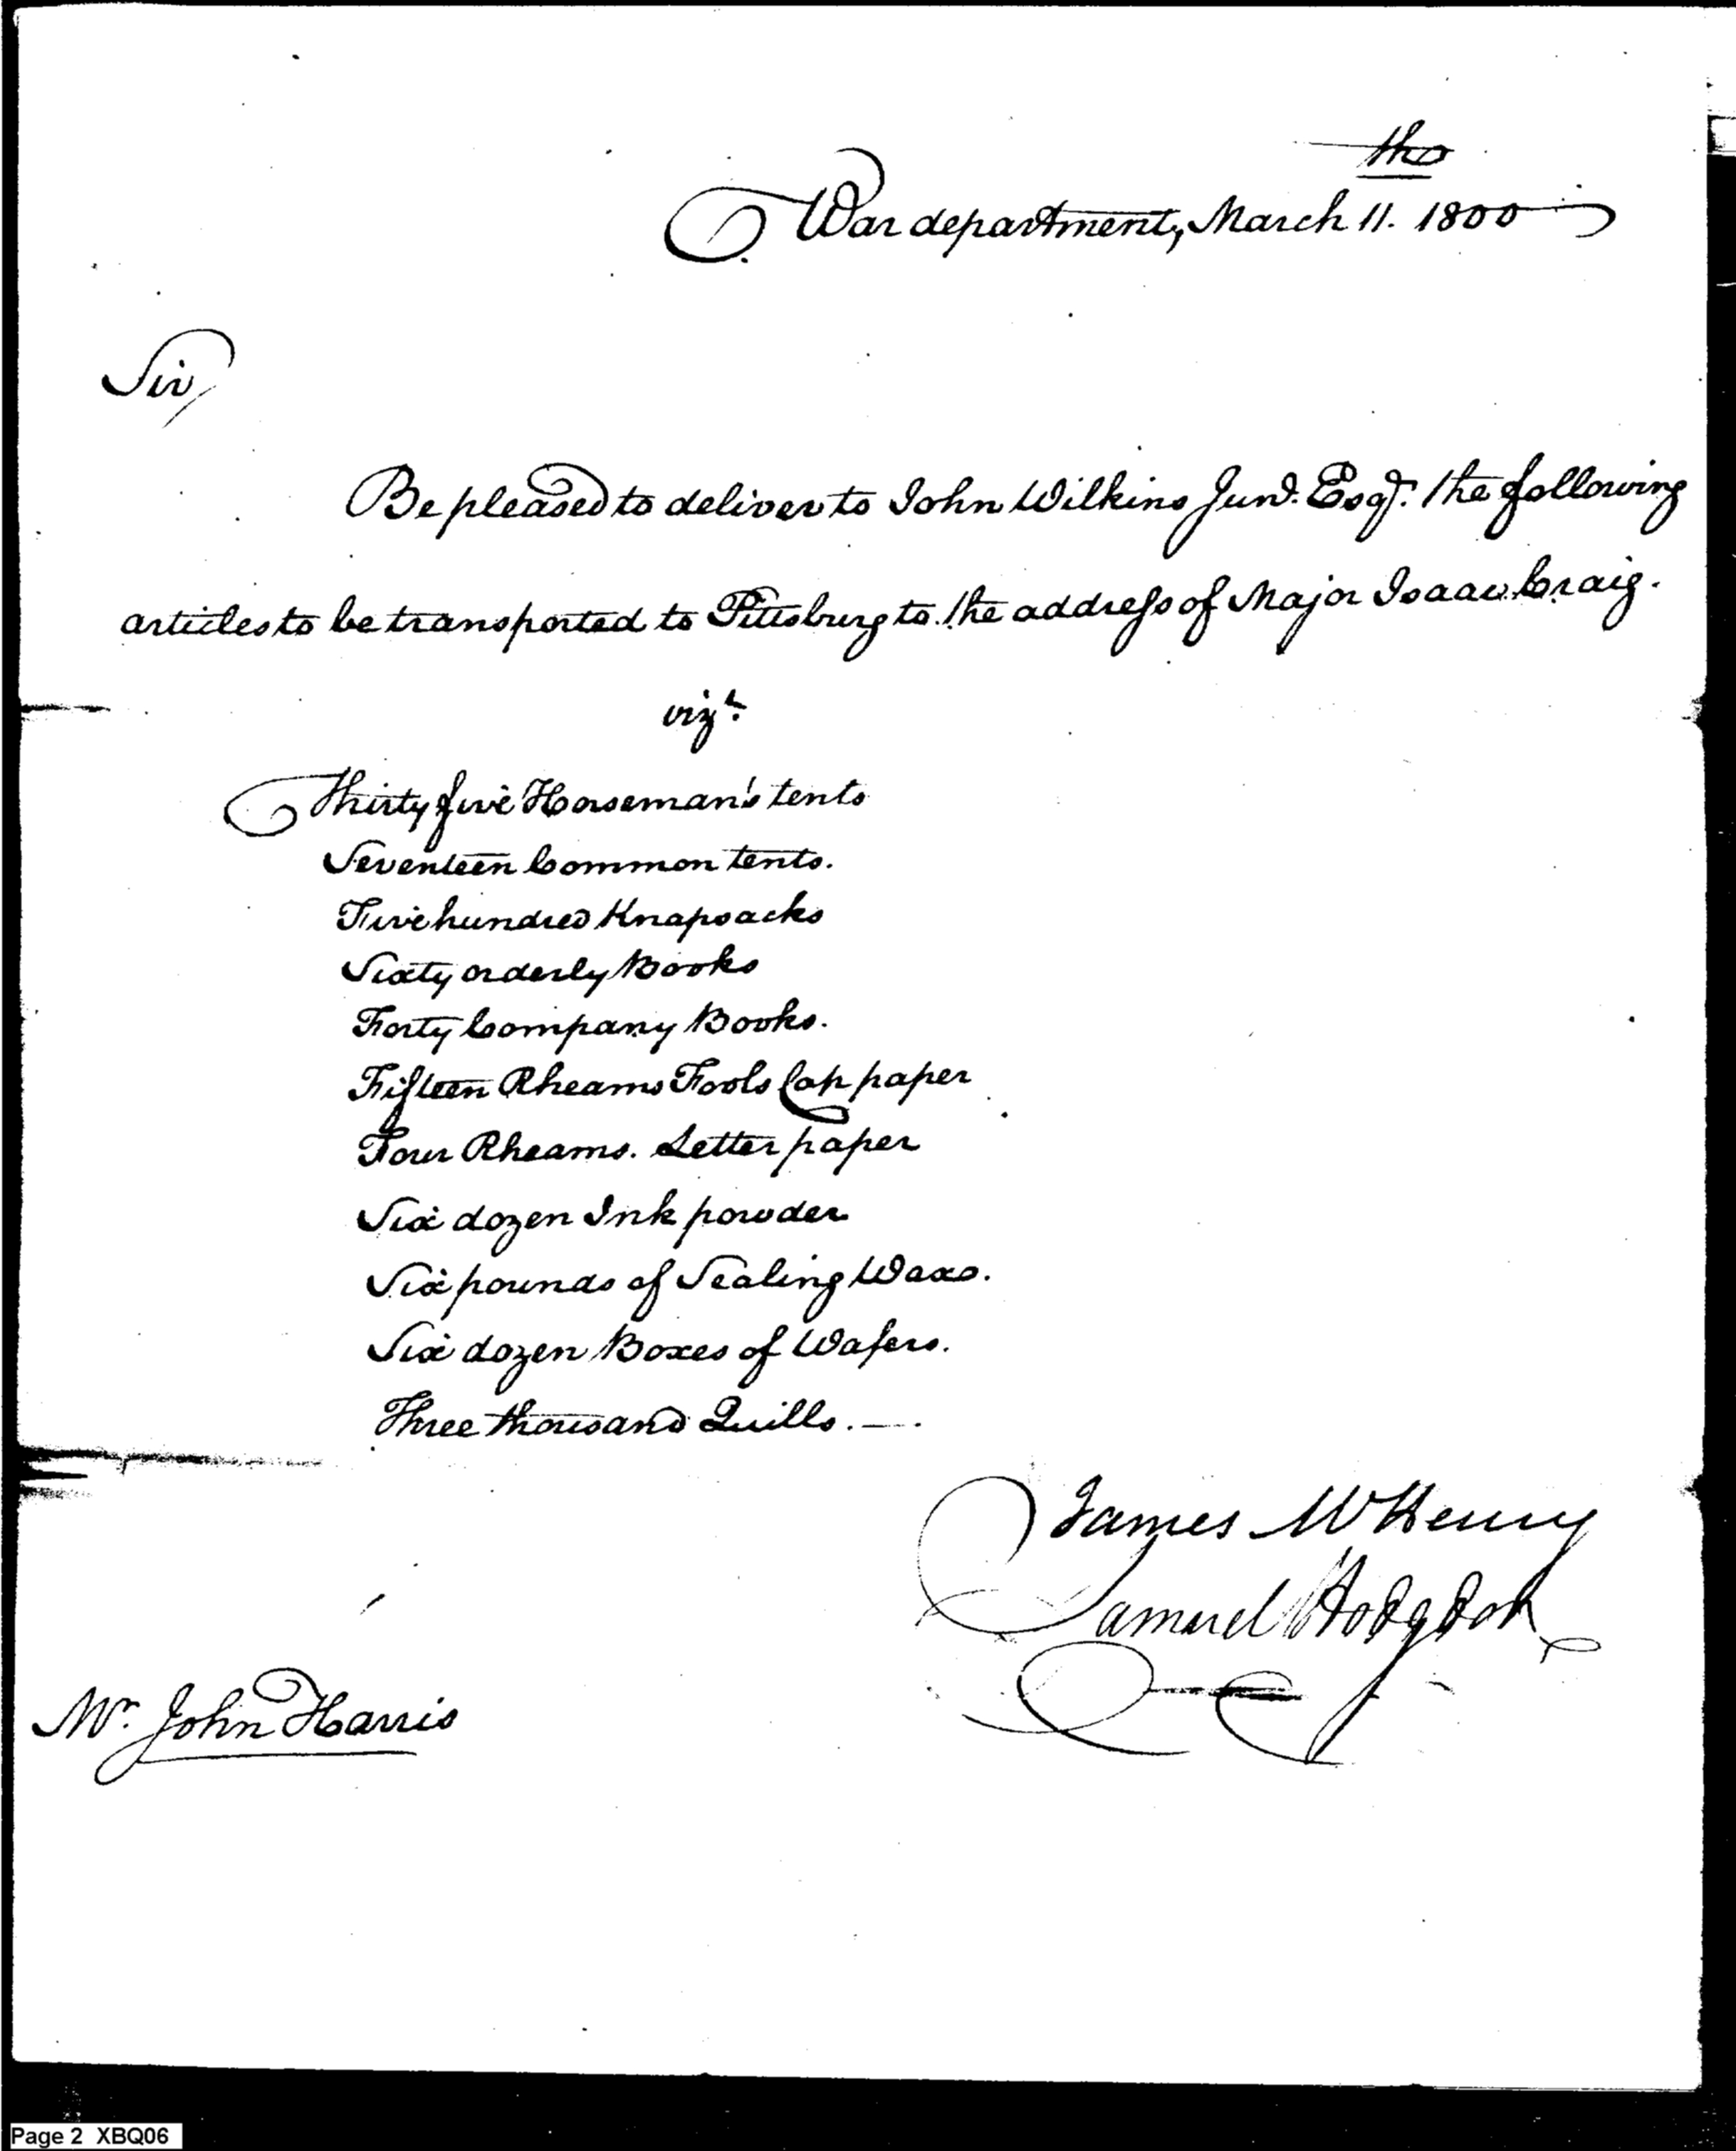 War department, March 11. 1800
Sir,
Be pleased to deliver to John Wilkins Junr. Esqr. the following
articles to be transported to Pittsburg to the address of Major Isaac Craig.
vizt.
Thirty five Horseman's tents
Seventeen Common tents.
Five hundred Knapsacks
Sixty orderly Books
Forty Company Books.
Fifteen Rheams Fools Cap paper
Four Rheams. Letter paper
Six dozen Ink powder
Six pounds of Sealing Wax.
Six dozen Boxes of Wafers.
Three thousand Quills. —.
James McHenry
Samuel Hodgdon
Mr. John Harris
Page 2 XBQ06